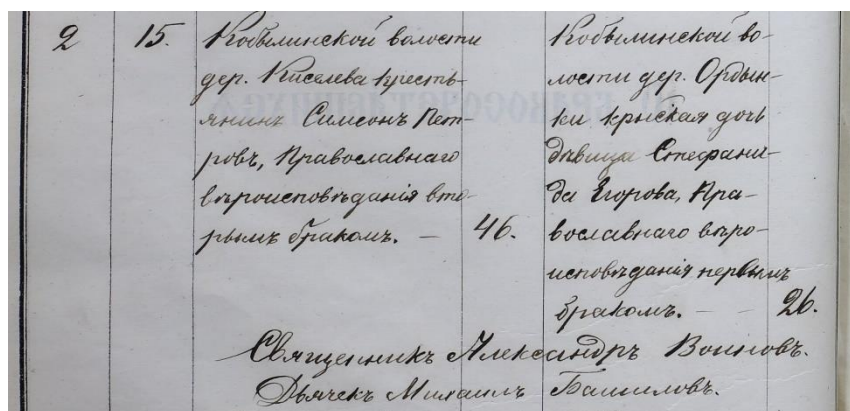 2
15.
Кобылинской волости
дер. Киселева кресть-
янинъ Симеонъ Пет-
ровъ, Православнаго
вѣроисповѣданія вто-
рымъ бракомъ. —
46.
Кобылинской во-
лости дер. Ордын-
ки крнская дочь
дѣвица Стефани-
да Егорова, Пра-
вославнаго вѣро-
исповѣданія первымъ
бракомъ. — —
26.
Священникъ Александръ Воиновъ.
Дьячекъ Михаилъ Башиловъ.